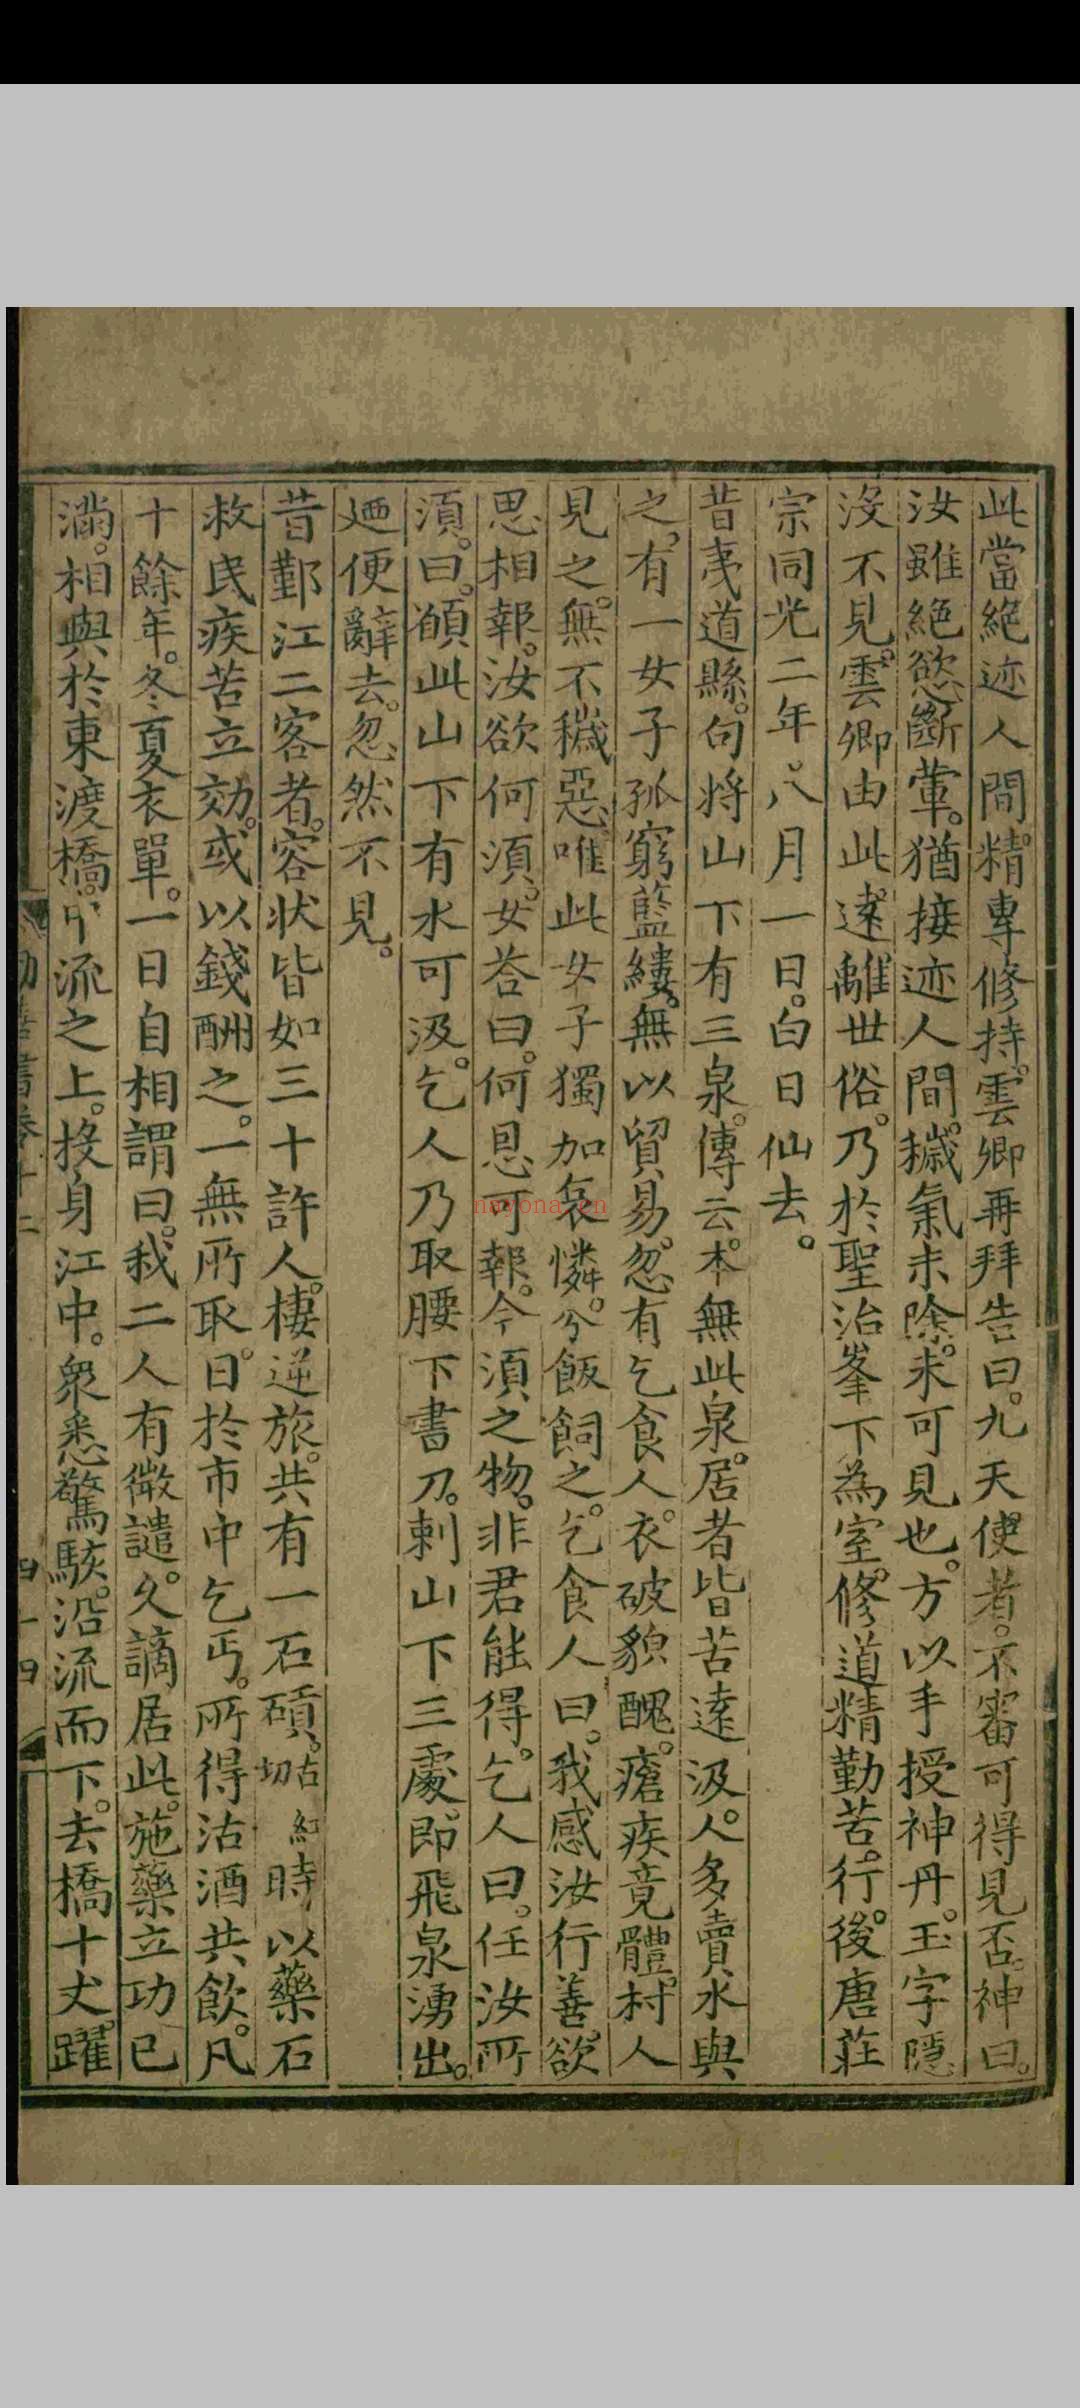 此當絕迹人間。精專修持。雲卿再拜告曰。九天使者。不審可得見否。神曰。
汝雖絕慾斷葷。猶接迹人間。穢氣未除。未可見也。方以手授神丹。玉字隱
沒不見。雲卿由此。遠離世俗。乃於聖治峯下為室。修道精勤苦。行。後唐莊
宗同光二年。八月一日。白日仙去。
昔夷道縣。句將山下有三泉。傳云。本無此泉。居者皆苦遠汲。人多賣水與
之。有一女子孤窮藍縷。無以貿易。忽有乞食人。衣破貌醜。瘡疾竟體。村人
見之。無不穢惡。唯此女子獨加哀憐。分飯飼之。乞食人曰。我感汝行善。欲
思相報。汝欲何湏。女荅曰。何恩可報。今湏之物。非君能得。乞人曰。任汝所
湏。曰。願此山下有水可汲。乞人乃取腰下書刀。刺山下三處。即飛泉湧出。
廼便辭去。忽然不見。
昔鄞江二客者。容状皆如三十許人。棲逆旅。共有一石碽。古紅切時以藥石
救民疾苦立効。或以錢酬之。一無所取。日於市中乞丐。所得沽酒共飲。凡
十餘年。冬夏衣單。一日自相謂曰。我二人有微譴。久謫居此。施藥立功已
滿。相與於東渡橋。中流之上。投身江中。衆悉驚駭。沿流而下。去橋十丈。躍
勸善書卷十二
四十四
navona.cn